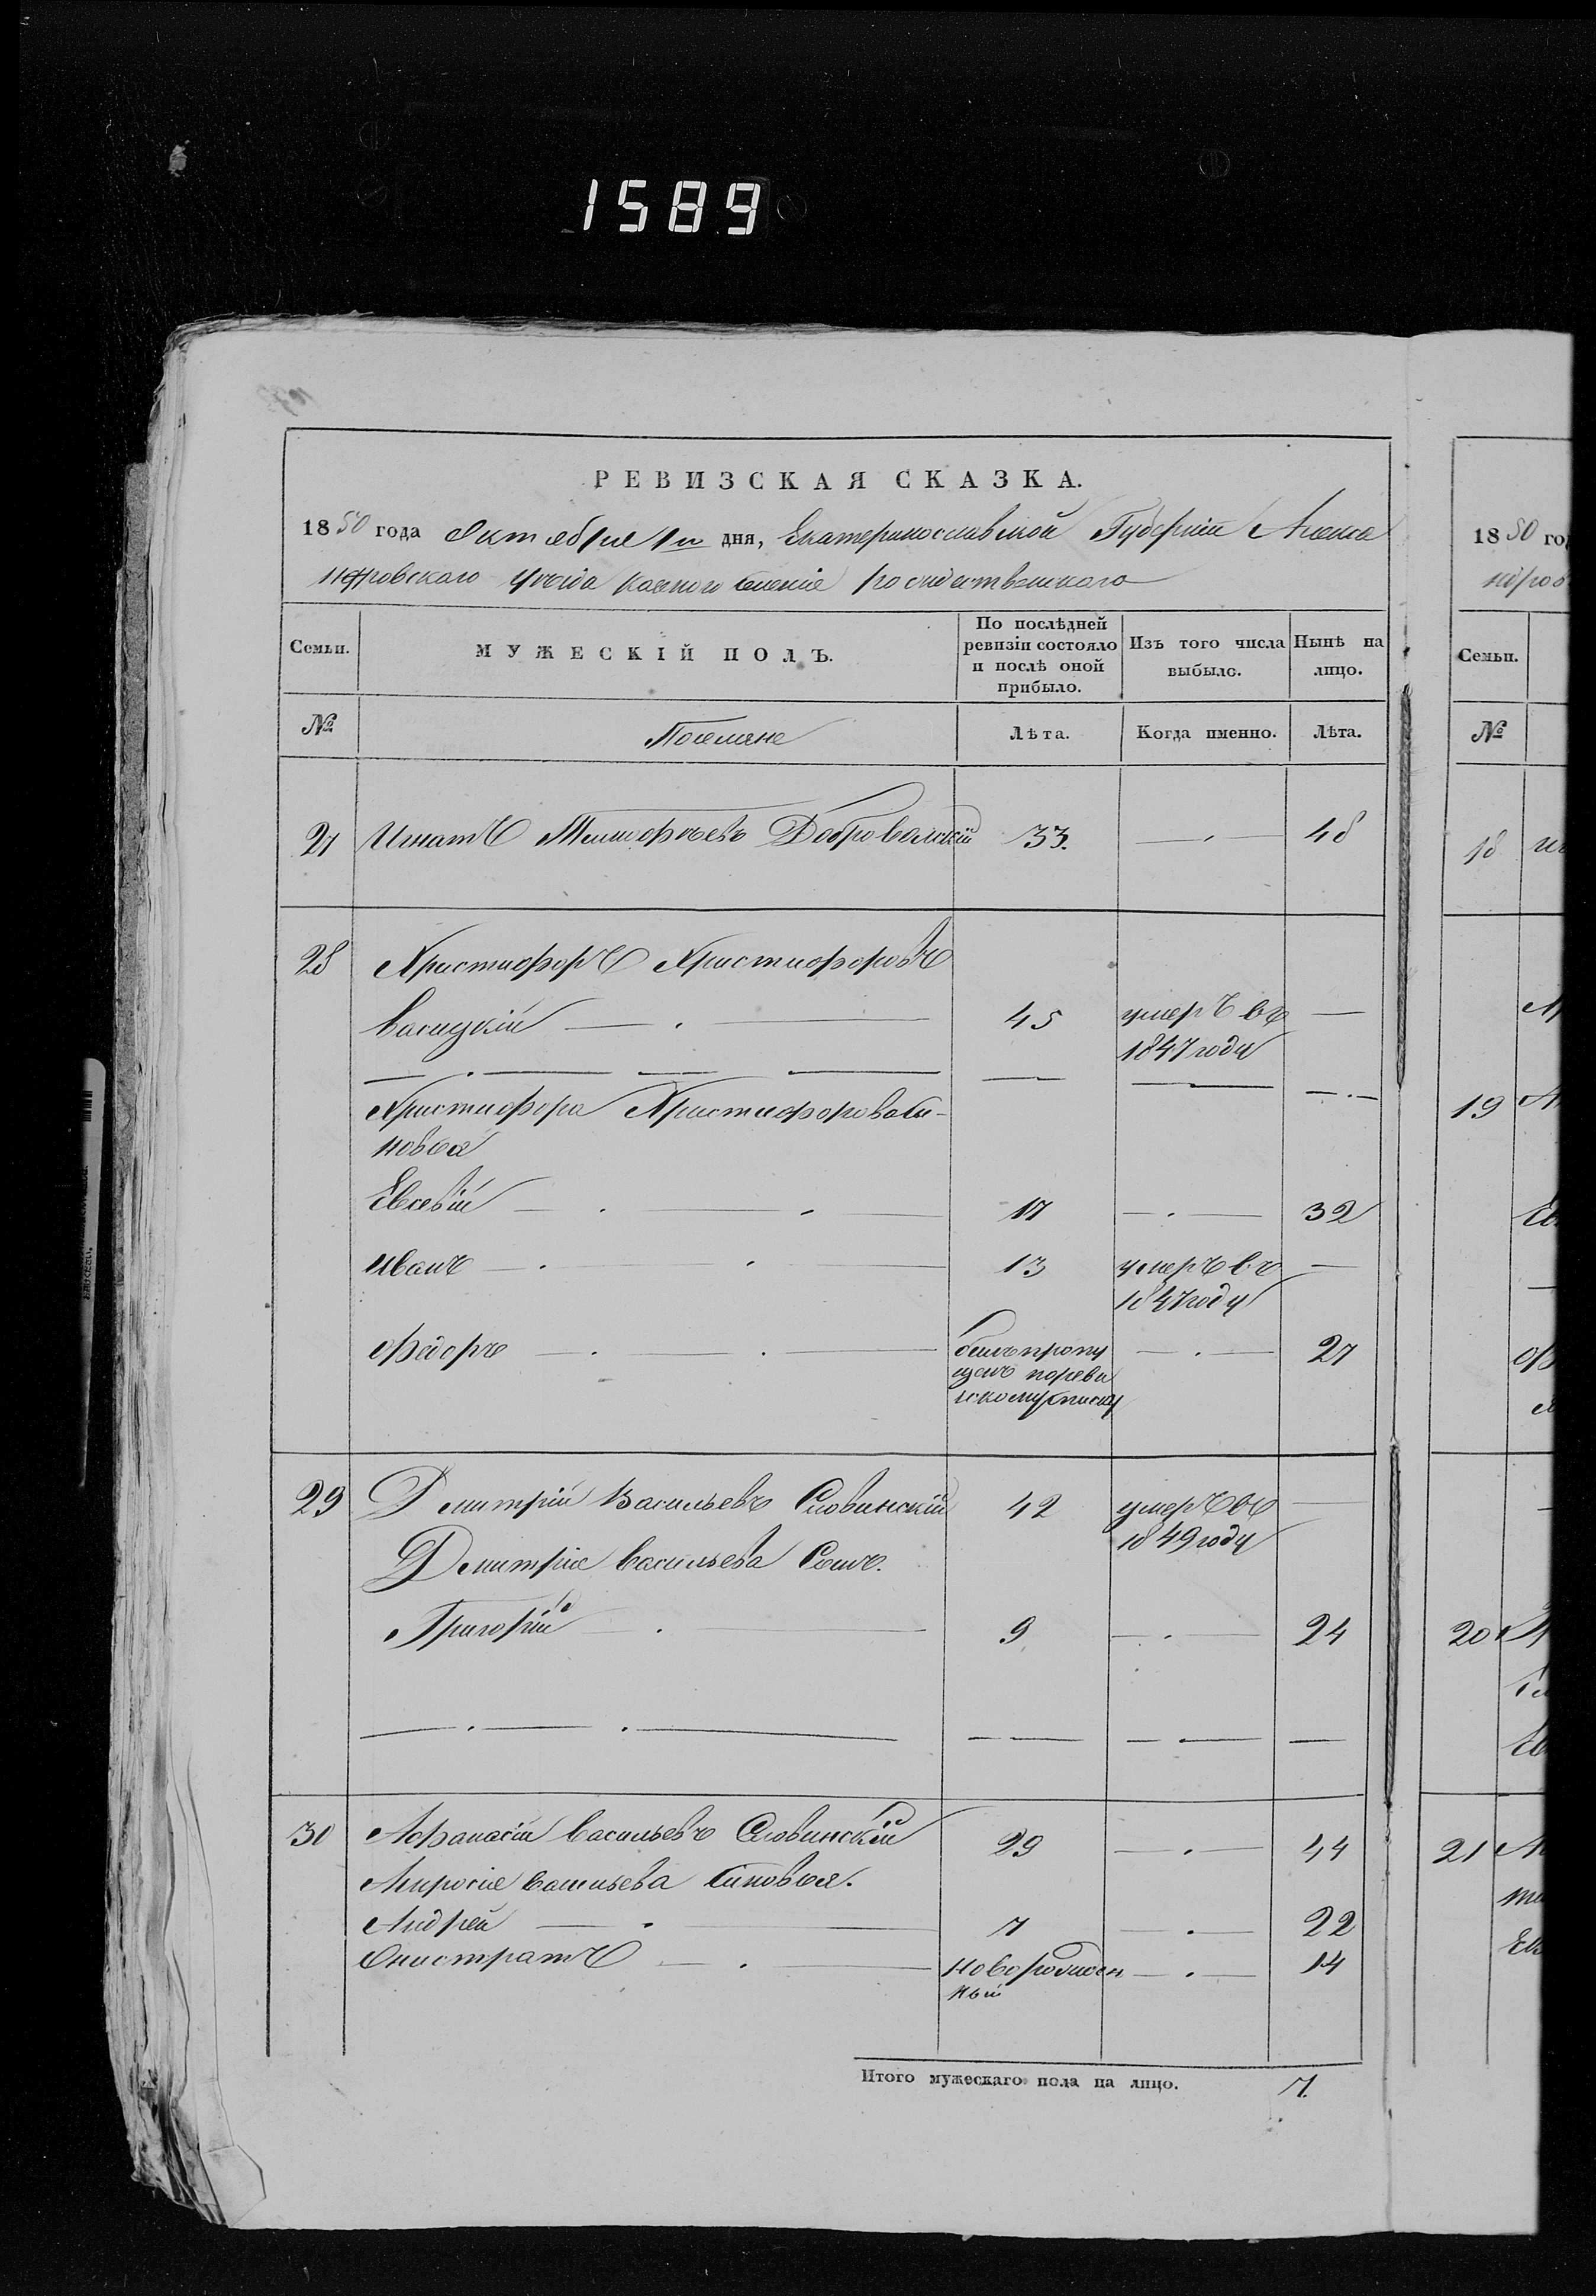 1589
РЕВИЗСКАЯ СКАЗКА.
1850 года Октября 1го дня, Екатеринославской Губернии Алекса
ндровского уезда
Семьи.
МУЖЕСКІЙ ПОЛЪ.
По послѣдней ревизіи состояло и послѣ оной прибыло.
Изъ того числа выбыло.
Нынѣ на лицо.
№
Поселяне
Лѣта.
Когда именно.
Лѣта.
27 Игнатъ Тимофѣевъ Добровольскій 33. 48
28 Христофоръ Христофоровъ
45 умеръ въ
1847 году
Христофора Христофорова Си-
новья
Евсевій 17 32
Иванъ 13 умеръ въ
1847 году
Федоръ былъ пропу 27
щенъ по реви
скому списку
29 Дмитрій Васильевъ Словинскій 42 умеръ въ
1849 году
Дмитрія Васильева Сынъ.
Григорій 9 24
30 Афанасій Васильевъ Словинскій 29 44
Васильева Синовья.
Андрей 7 22
новорожден 14
ный
Итого мужескаго пола на лицо. 7.
1850 го
Семьи.
№
18
19
20
21